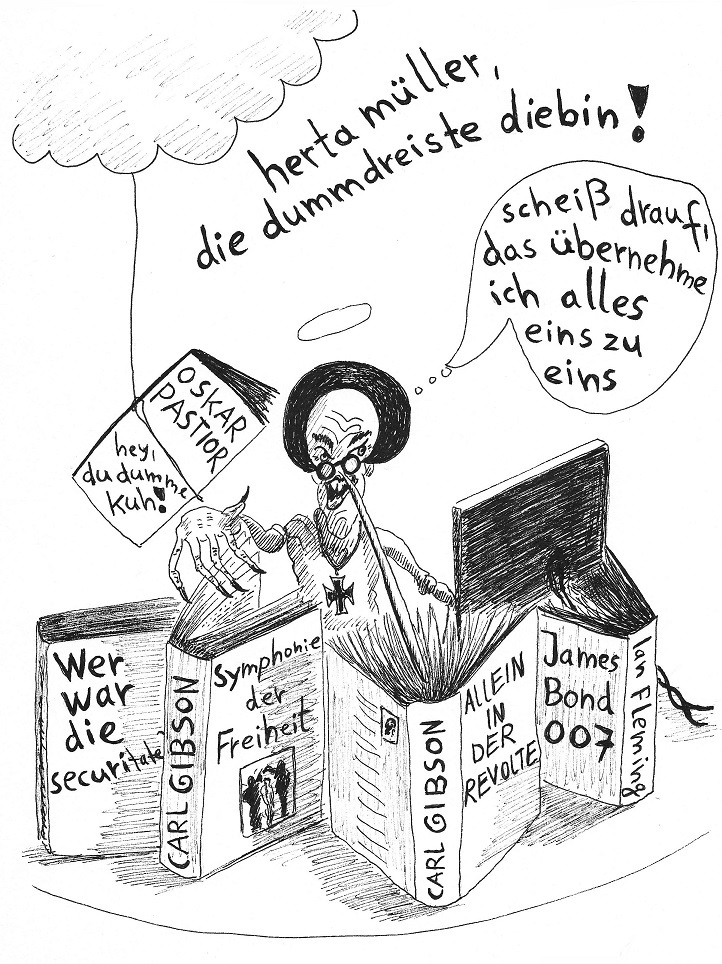 herta müller,
die dummdreiste diebin!
scheiß drauf,
das übernehme
ich alles
eins zu
eins
OSKAR
PASTIOR
hey,
du dumme
Kuh!
Wer
war
die
securitate?
CARL GIBSON
Symphonie
der
Freiheit
CARL GIBSON
ALLEIN
IN
DER
REVOLTE
James
Bond
007
Ian Fleming